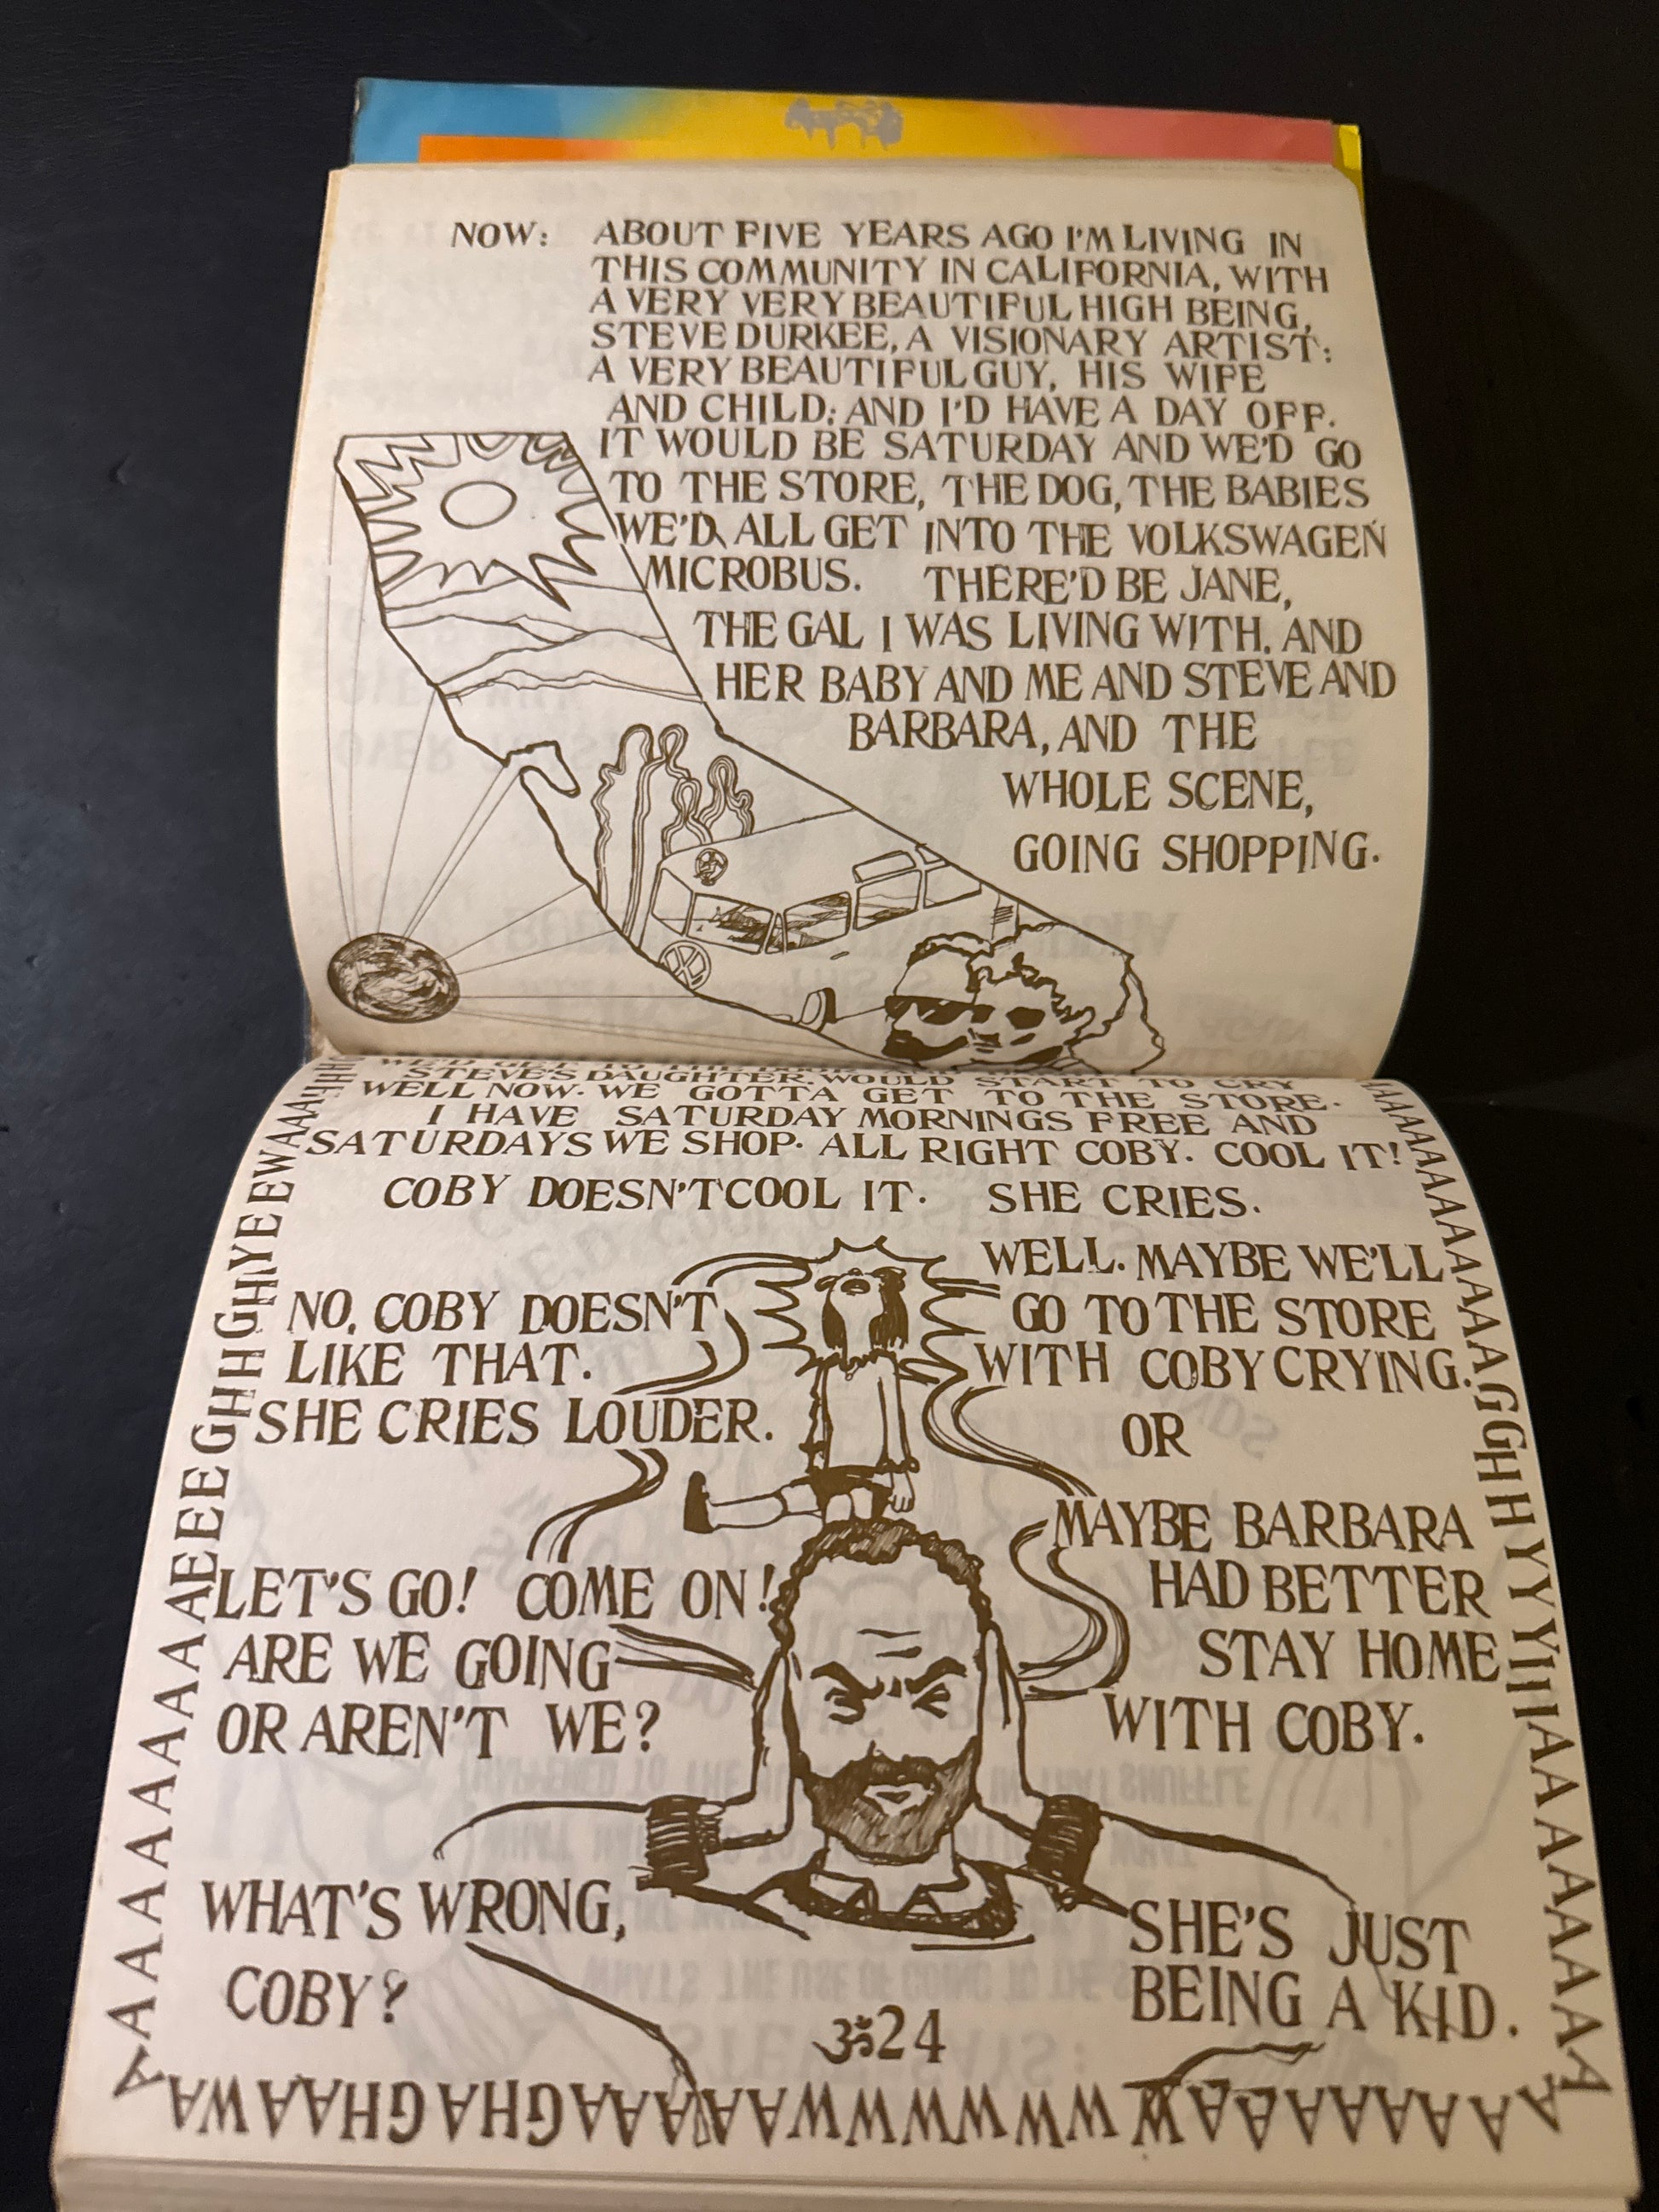 NOW: ABOUT FIVE YEARS AGO I'M LIVING IN
THIS COMMUNITY IN CALIFORNIA, WITH
A VERY VERY BEAUTIFUL HIGH BEING,
STEVE DURKEE, A VISIONARY ARTIST:
A VERY BEAUTIFUL GUY, HIS WIFE
AND CHILD: AND I'D HAVE A DAY OFF.
IT WOULD BE SATURDAY AND WE'D GO
TO THE STORE, THE DOG, THE BABIES
WE'D ALL GET INTO THE VOLKSWAGEN
MICROBUS. THERE'D BE JANE,
THE GAL I WAS LIVING WITH, AND
HER BABY AND ME AND STEVE AND
BARBARA, AND THE
WHOLE SCENE,
GOING SHOPPING.
WE'D GET TO THE DOOR
STEVE'S DAUGHTER, WOULD START TO CRY
WELL NOW. WE GOTTA GET TO THE STORE.
I HAVE SATURDAY MORNINGS FREE AND
SATURDAYS WE SHOP. ALL RIGHT COBY. COOL IT!
COBY DOESN'T COOL IT. SHE CRIES.
NO, COBY DOESN'T
LIKE THAT.
SHE CRIES LOUDER.
WELL. MAYBE WE'LL
GO TO THE STORE
WITH COBY CRYING.
OR
MAYBE BARBARA
HAD BETTER
STAY HOME
WITH COBY.
LET'S GO! COME ON!
ARE WE GOING
OR AREN'T WE?
WHAT'S WRONG,
COBY?
SHE'S JUST
BEING A KID.
ॐ24